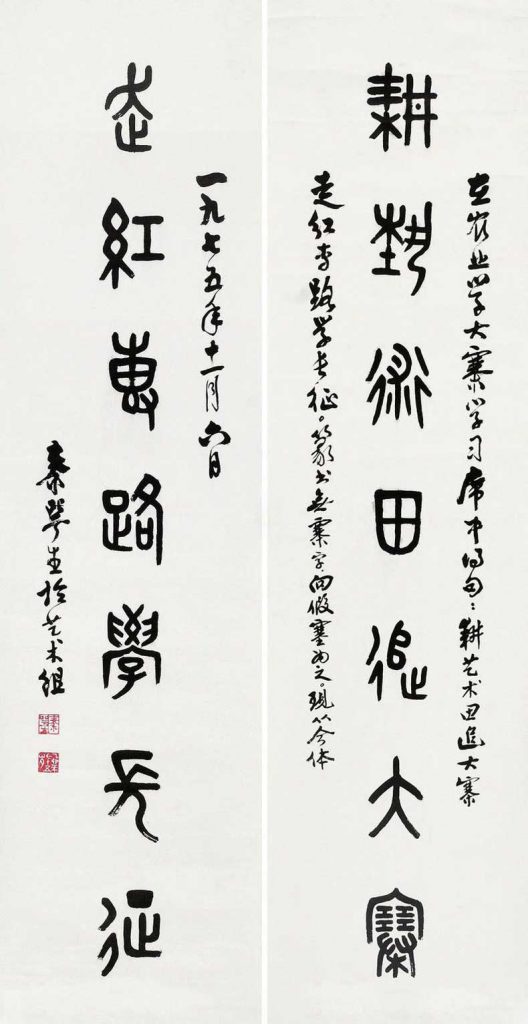 在农业学大寨学习席中得句：耕艺术田追大寨
耕埶術田追大寨
走红专路学长征。篆书无寨字向假塞为之。现从今体
一九七五年十一月六日
走紅專路學長征
秦咢生於艺术组